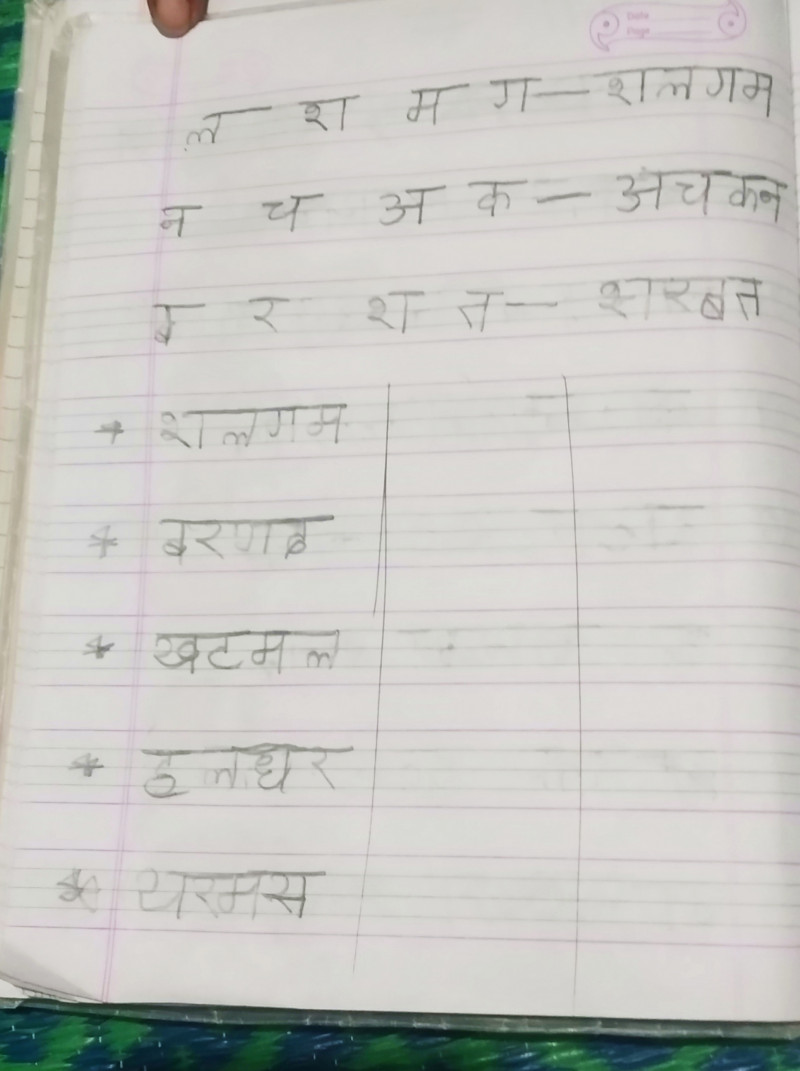 ल श म ग — शलगम
न च अ क — अचकन
ब र श त — शरबत
* शलगम
* बरगद
* खटमल
* हलधर
* थरमस